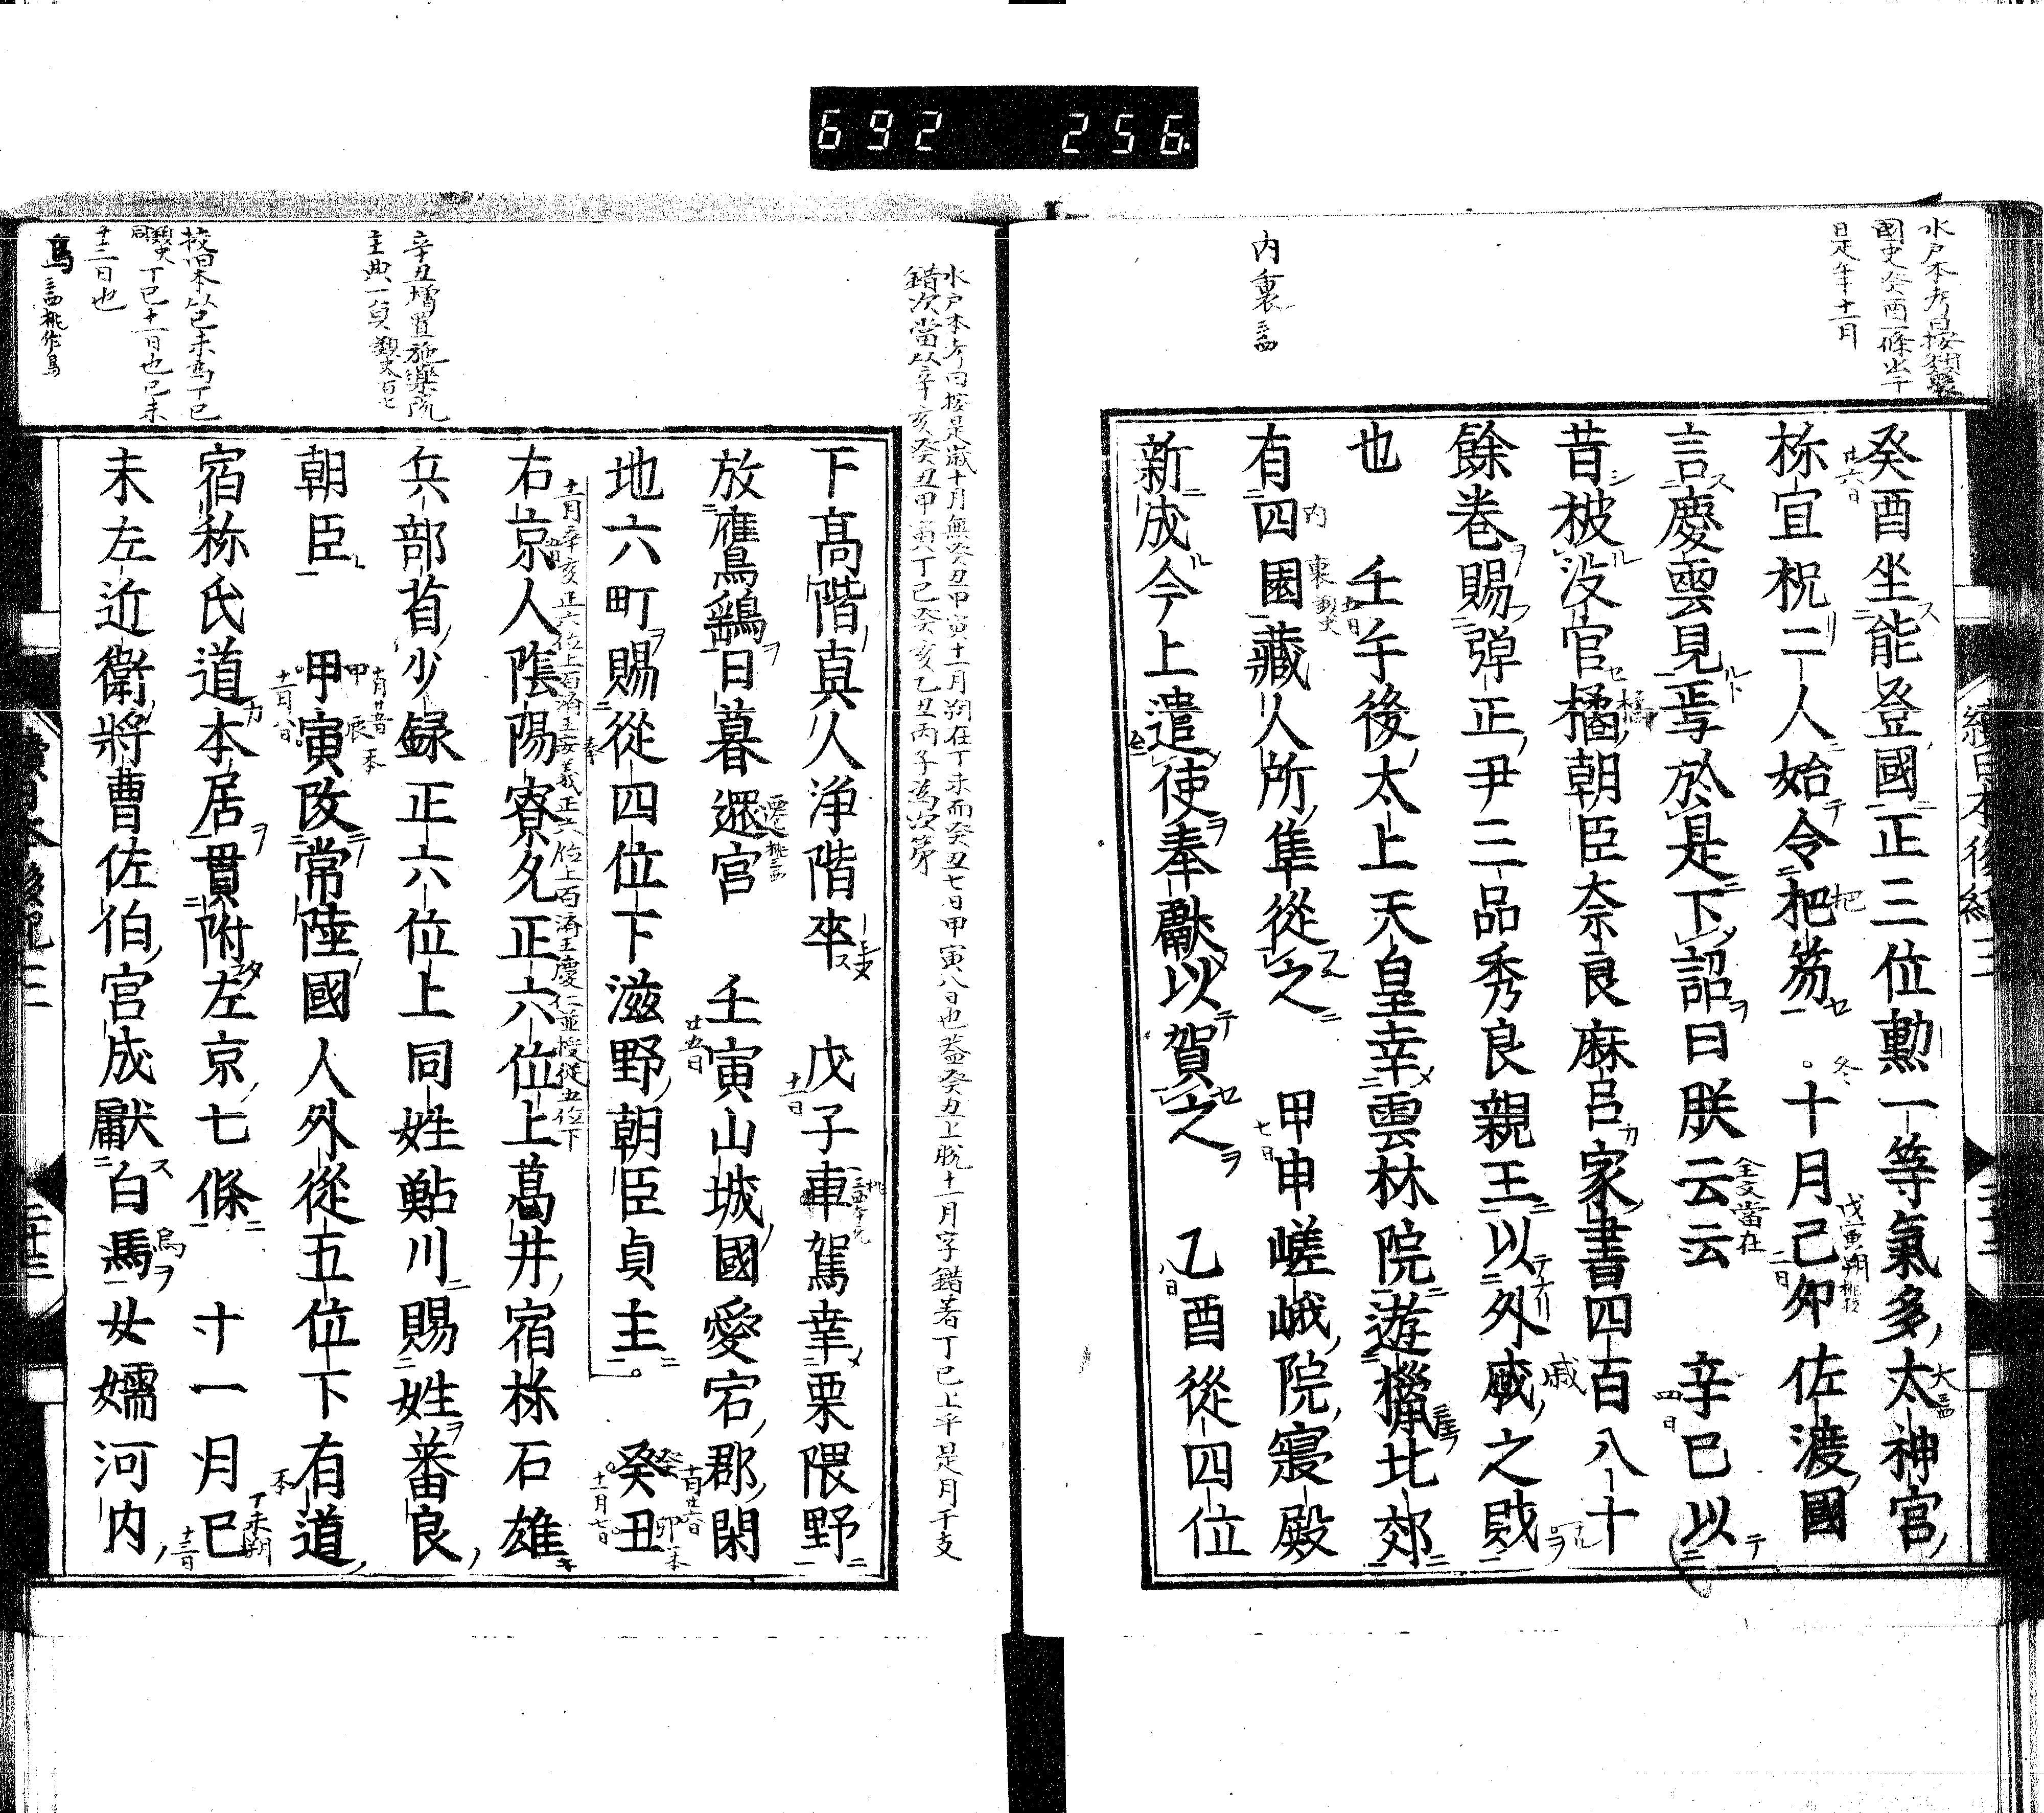 692 256
水戸本考曰按類聚
國史癸酉條出于
日是年十二月
内裏
癸酉坐能登國正三位勲一等氣多太神宮
祢宜祝二人始令把笏 十月己卯佐渡國
言慶雲見焉於是下詔曰朕云云 辛巳以
昔被没官橘朝臣奈良麻呂家書四百八十
餘巻賜彈正尹三品秀良親王以外戚之財
也 壬午後太上天皇幸雲林院遊獵北郊
有四園藏人所隼從之 甲申嵯峨院寝殿
新成今上遣使奉獻以賀之 乙酉從四位
水戸本考曰按是歳十月無癸丑甲寅十一月朔在丁未而癸丑七日甲寅八日也蓋癸丑上脱十一月字錯著丁巳上乎是月干支
錯次當以辛亥癸丑甲寅丁巳癸亥乙丑丙子為次第
下高階真人浄階卒 戊子車駕幸栗隈野
放鷹鷂日暮還宮 壬寅山城國愛宕郡閑
地六町賜從四位下滋野朝臣貞主 癸丑
十一月辛亥正六位上百濟王安義正六位上百濟王慶仁並授從五位下
右京人陰陽寮允正六位上葛井宿祢石雄
兵部省少録正六位上同姓鮎川賜姓蕃良
朝臣 甲寅改常陸國人外從五位下有道
宿祢氏道本居貫附左京七條 十一月巳
未左近衛將曹佐伯宮成獻白馬女嬬河内
辛丑増置施藥院
主典一員 類史百七
按旧本以己未為丁巳
類史同 丁巳十一日也己未
十三日也